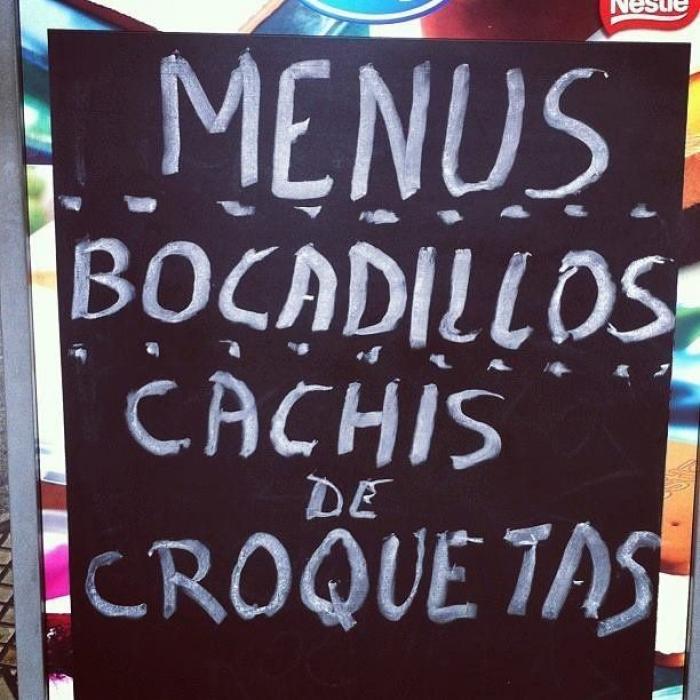 Nestlé
MENUS
BOCADILLOS
CACHIS
DE
CROQUETAS